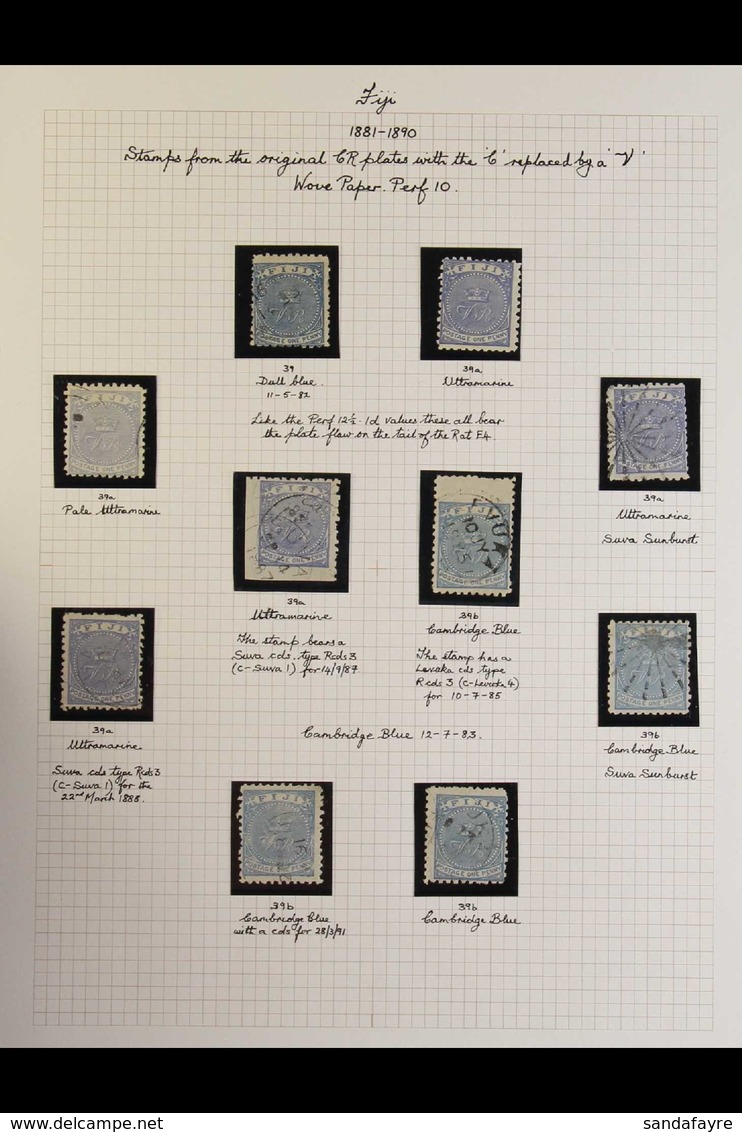 Fiji
1881-1890
Stamps from the original CR plates with the 'C' replaced by a 'V'
Wove Paper. Perf 10.
FIJI
VR
POSTAGE ONE PENNY
FIJI
VR
POSTAGE ONE PENNY
39
Dull blue.
11-5-82
39a
Ultramarine
Like the Perf 12½. 1d values these all bear
the plate flaw on the tail of the Rat E4.
FIJI
VR
POSTAGE ONE PENNY
39a
Pale Ultramarine
FIJI
VR
POSTAGE ONE PENNY
39a
Ultramarine
Suva Sunburst
FIJI
VR
POSTAGE ONE PENNY
39a
Ultramarine
The stamp bears a
Suva cds. type Rcds 3
(C-Suva 1) for 14/9/87
FIJI
POSTAGE ONE PENNY
39b
Cambridge Blue
The stamp has a
Levuka cds type
Rcds 3 (C-Levuka 4)
for 10-7-85
FIJI
VR
POSTAGE ONE PENNY
39a
Ultramarine
Suva cds type Rcds 3
(C-Suva 1) for the
22nd March 1888.
Cambridge Blue 12-7-83.
FIJI
VR
POSTAGE ONE PENNY
39b
Cambridge Blue
Suva Sunburst
FIJI
VR
POSTAGE ONE PENNY
39b
Cambridge blue
with a cds for 28/3/91
FIJI
VR
POSTAGE ONE PENNY
39b
Cambridge Blue
sandafayre